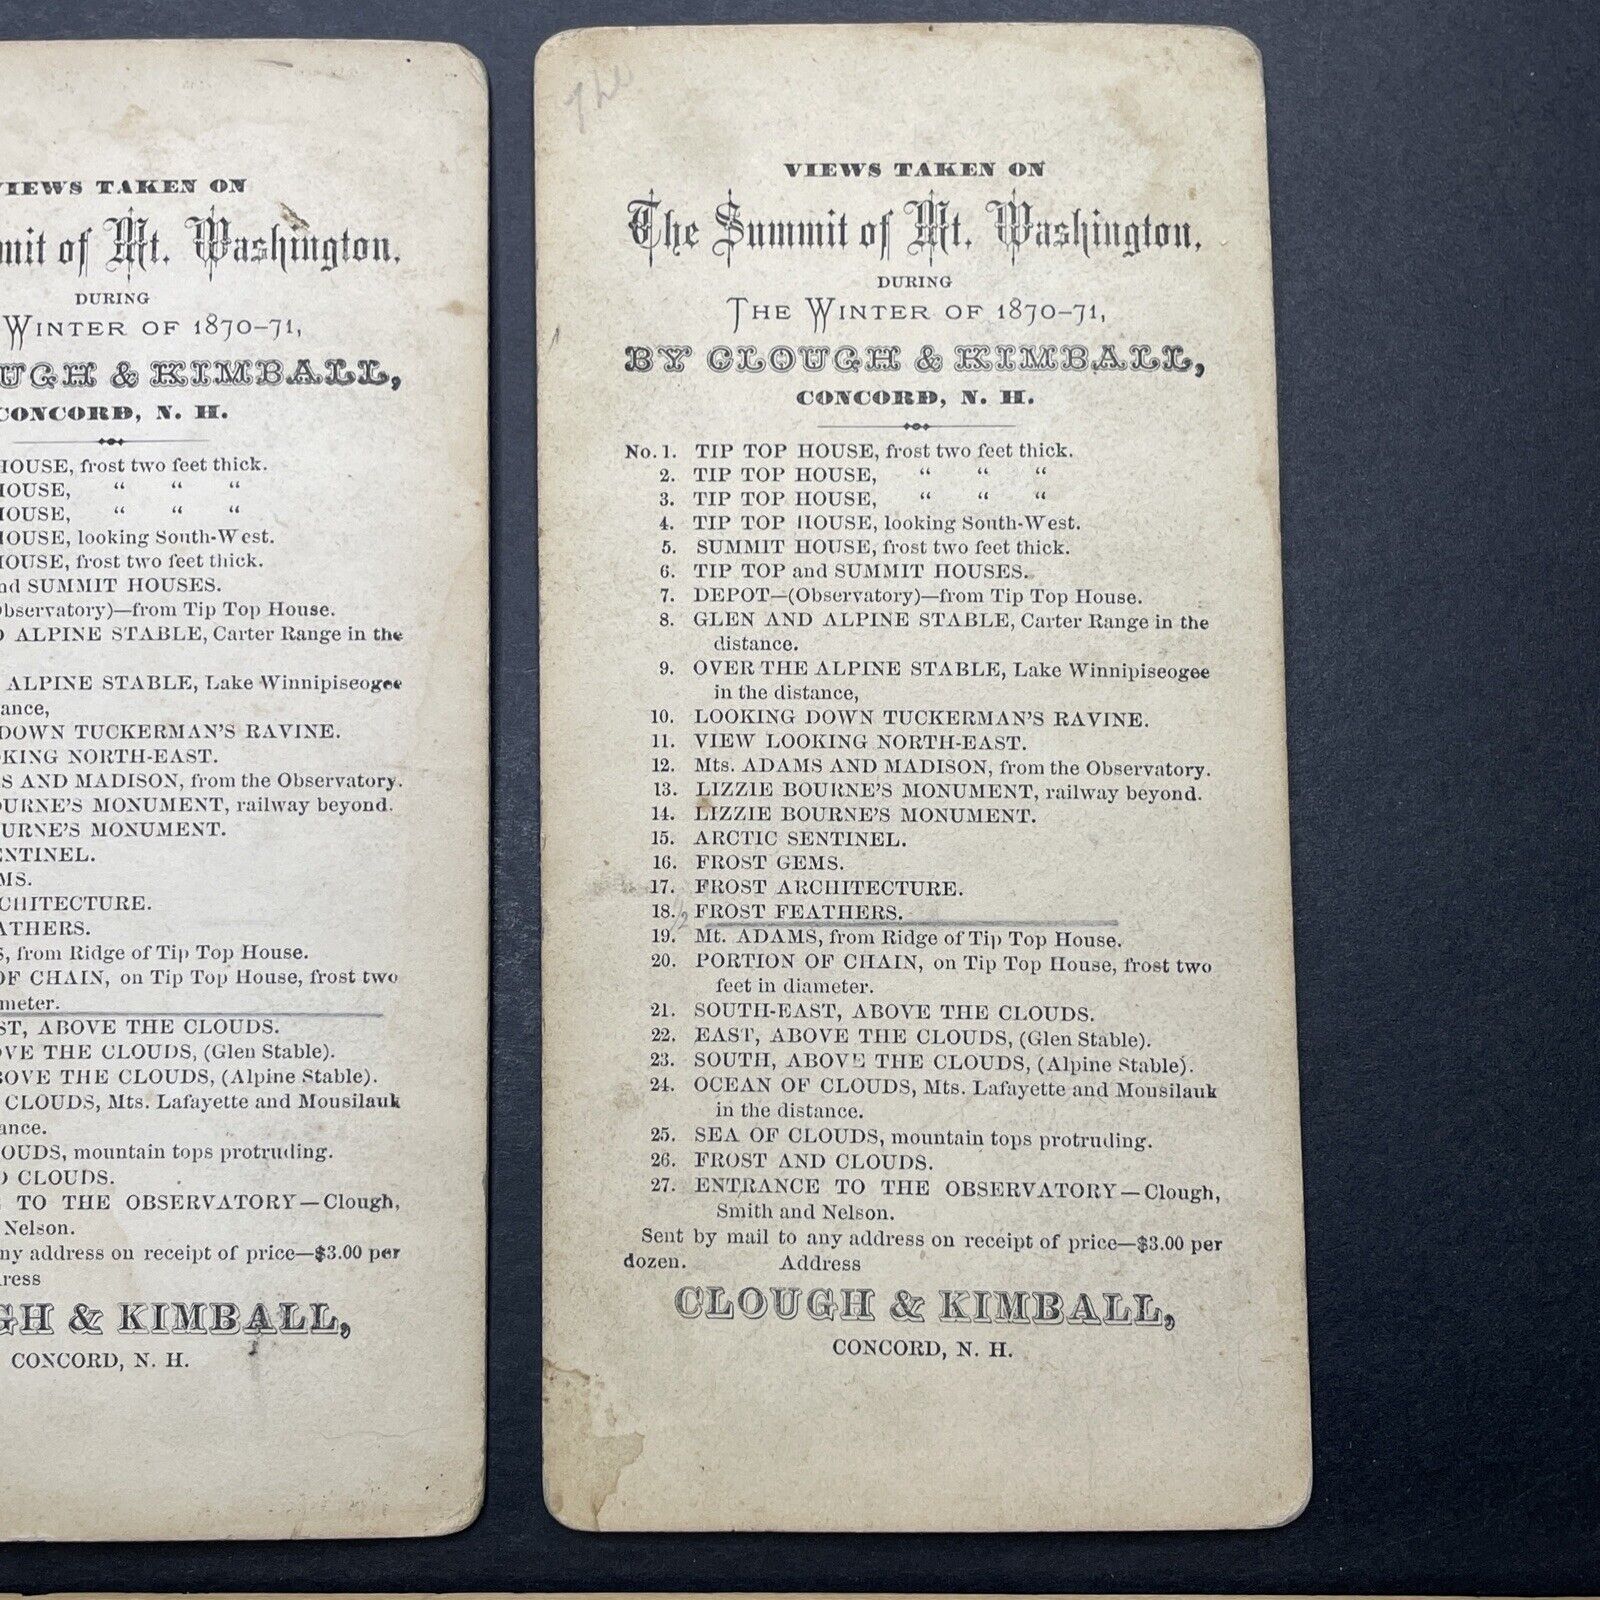 VIEWS TAKEN ON
mit of Mt. Washington,
DURING
WINTER OF 1870-71,
UGH & KIMBALL,
CONCORD, N. H.
HOUSE, frost two feet thick.
HOUSE, “ “ “
HOUSE, “ “ “
HOUSE, looking South-West.
HOUSE, frost two feet thick.
nd SUMMIT HOUSES.
Observatory)—from Tip Top House.
D ALPINE STABLE, Carter Range in the
ALPINE STABLE, Lake Winnipiseogee
ance,
DOWN TUCKERMAN'S RAVINE.
KING NORTH-EAST.
S AND MADISON, from the Observatory.
OURNE'S MONUMENT, railway beyond.
URNE'S MONUMENT.
ENTINEL.
MS.
CHITECTURE.
ATHERS.
S, from Ridge of Tip Top House.
OF CHAIN, on Tip Top House, frost two
meter.
ST, ABOVE THE CLOUDS.
OVE THE CLOUDS, (Glen Stable).
BOVE THE CLOUDS, (Alpine Stable).
CLOUDS, Mts. Lafayette and Mousilauk
ance.
LOUDS, mountain tops protruding.
D CLOUDS.
E TO THE OBSERVATORY—Clough,
Nelson.
ny address on receipt of price—$3.00 per
ress
GH & KIMBALL,
CONCORD, N. H.
The
VIEWS TAKEN ON
The Summit of Mt. Washington,
DURING
THE WINTER OF 1870-71,
BY CLOUGH & KIMBALL,
CONCORD, N. H.
No. 1. TIP TOP HOUSE, frost two feet thick.
2. TIP TOP HOUSE, “ “ “
3. TIP TOP HOUSE, “ “ “
4. TIP TOP HOUSE, looking South-West.
5. SUMMIT HOUSE, frost two feet thick.
6. TIP TOP and SUMMIT HOUSES.
7. DEPOT—(Observatory)—from Tip Top House.
8. GLEN AND ALPINE STABLE, Carter Range in the
distance.
9. OVER THE ALPINE STABLE, Lake Winnipiseogee
in the distance,
10. LOOKING DOWN TUCKERMAN'S RAVINE.
11. VIEW LOOKING NORTH-EAST.
12. Mts. ADAMS AND MADISON, from the Observatory.
13. LIZZIE BOURNE'S MONUMENT, railway beyond.
14. LIZZIE BOURNE'S MONUMENT.
15. ARCTIC SENTINEL.
16. FROST GEMS.
17. FROST ARCHITECTURE.
18. FROST FEATHERS.
19. Mt. ADAMS, from Ridge of Tip Top House.
20. PORTION OF CHAIN, on Tip Top House, frost two
feet in diameter.
21. SOUTH-EAST, ABOVE THE CLOUDS.
22. EAST, ABOVE THE CLOUDS, (Glen Stable).
23. SOUTH, ABOVE THE CLOUDS, (Alpine Stable).
24. OCEAN OF CLOUDS, Mts. Lafayette and Mousilauk
in the distance.
25. SEA OF CLOUDS, mountain tops protruding.
26. FROST AND CLOUDS.
27. ENTRANCE TO THE OBSERVATORY—Clough,
Smith and Nelson.
Sent by mail to any address on receipt of price—$3.00 per
dozen. Address
CLOUGH & KIMBALL,
CONCORD, N. H.